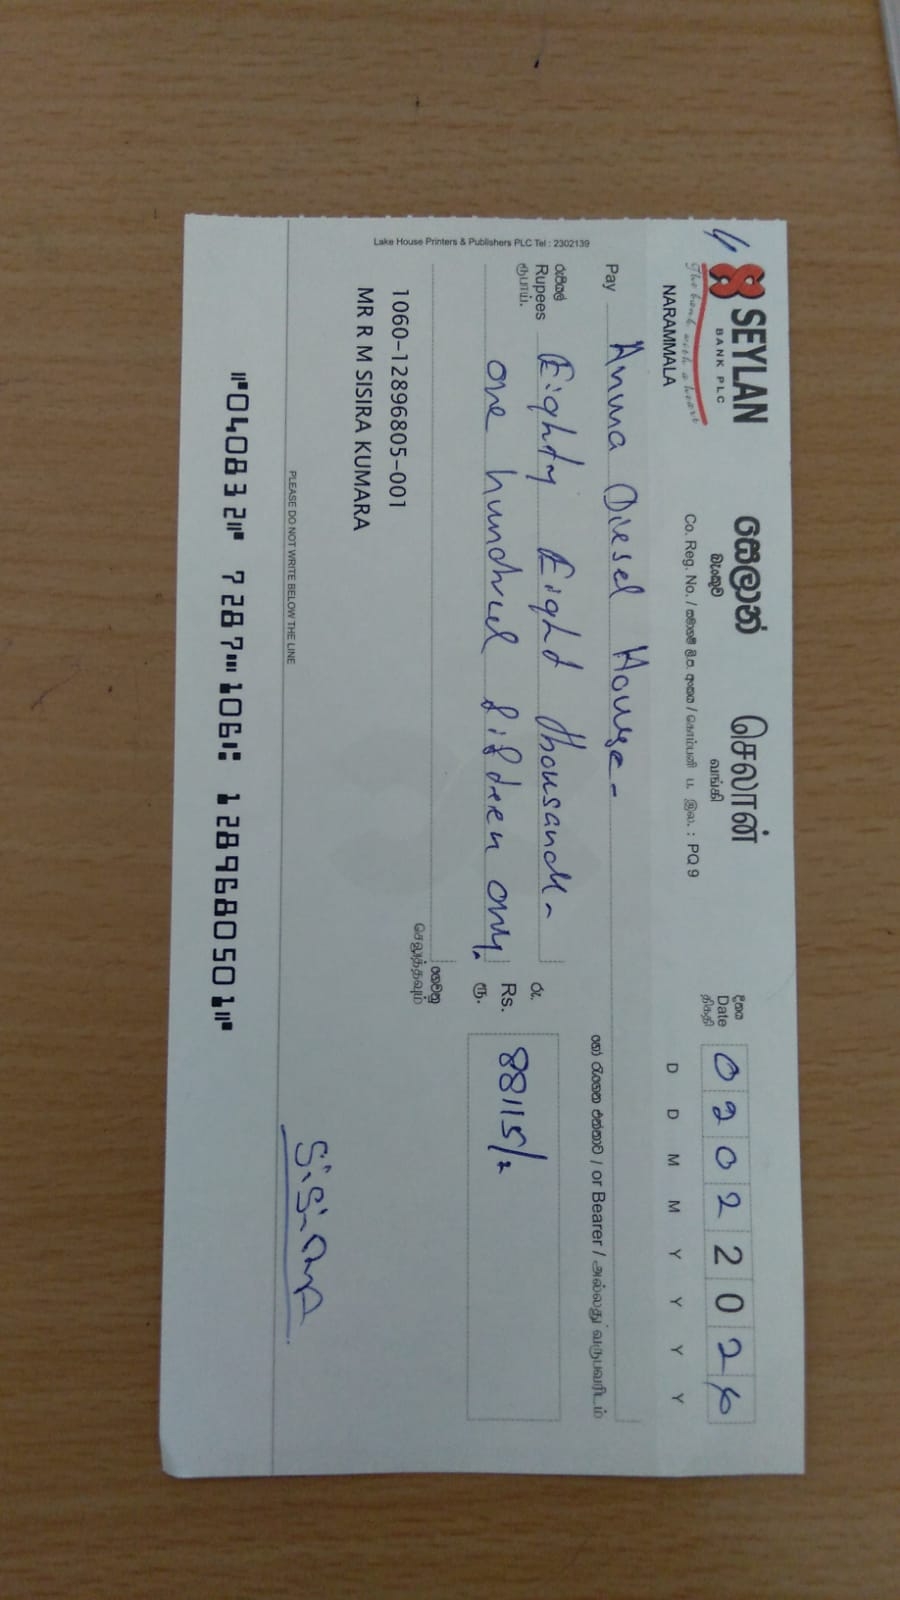 SEYLAN
BANK PLC
The bank with a heart
NARAMMALA
සෙලාන්
බැංකුව
செலான்
வங்கி
Co. Reg. No. / සමාගම් ලි.ප. අංකය / கொம்பனி ப. இல. : PQ 9
දිනය
Date
திகதி
0 2 0 2 2 0 2 6
D D M M Y Y Y Y
Pay Anuma Diesel House-
හෝ රැගෙන එන්නාට / or Bearer / அல்லது வருபவரிடம்
රුපියල්
Rupees
ரூபாய்.
Eighty Eight thousand-
one hundred fifteen only.
රු.
Rs.
ரூ.
88115/-
ගෙවනු
செலுத்தவும்
1060-12896805-001
MR R M SISIRA KUMARA
Sisira
PLEASE DO NOT WRITE BELOW THE LINE
⑈040832⑈ 7287⑉106⑆ 128968050 1⑈
Lake House Printers & Publishers PLC Tel : 2302139